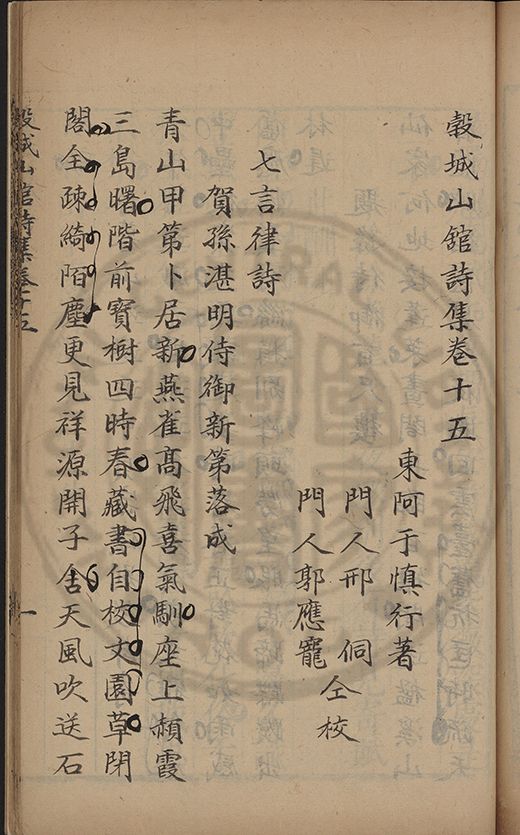 穀城山館詩集卷十五
東阿于慎行著
門人邢侗
門人郭應寵
仝校
七言律詩
賀孫湛明侍御新第落成
青山甲第卜居新燕雀高飛喜氣馴座上赬霞
三島曙階前寳樹四時春藏書自校文園草閉
閣全疎綺陌塵更見祥源開子舍天風吹送石
穀城山館詩集卷十五
一